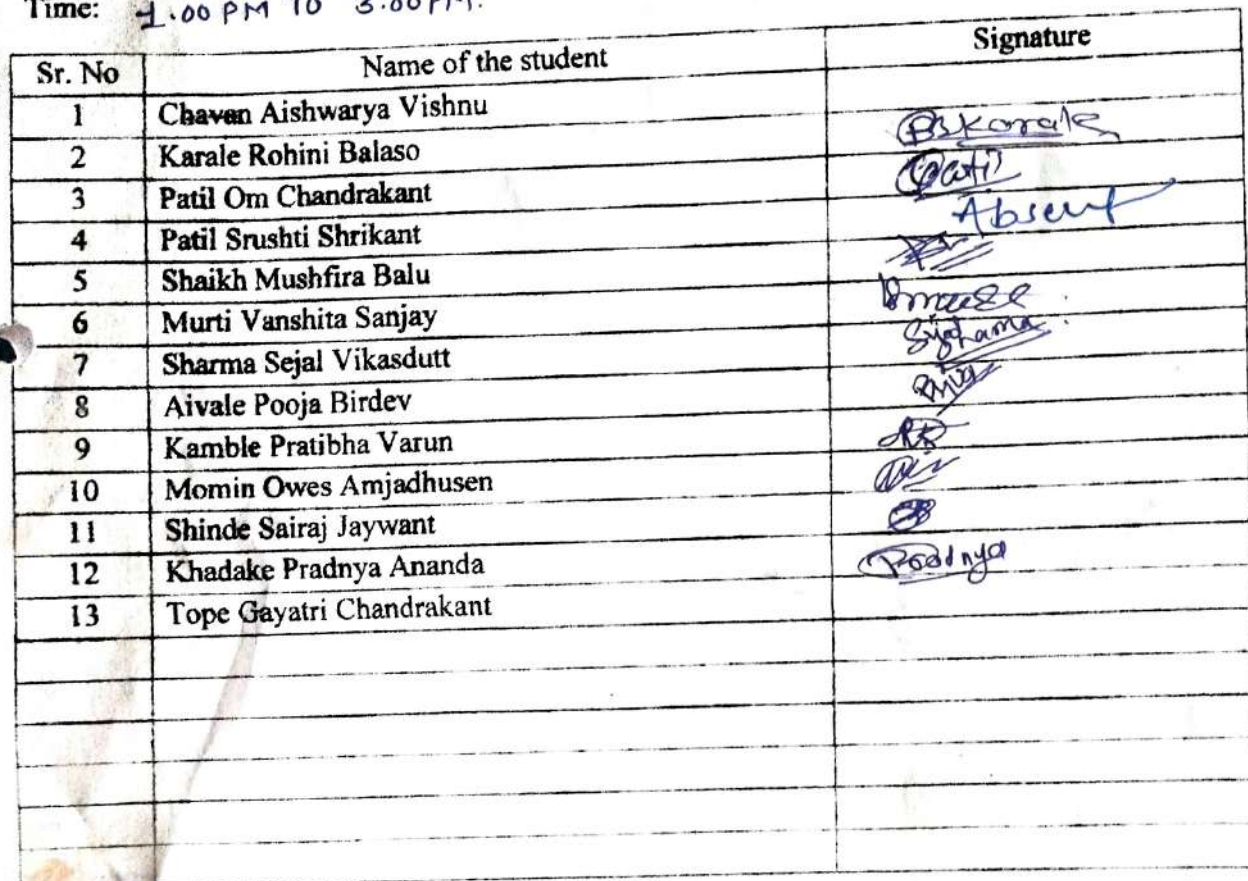 Time: 1.00 PM TO 3.00 PM.
Sr. No Name of the student Signature
1 Chavan Aishwarya Vishnu
2 Karale Rohini Balaso RBKarale
3 Patil Om Chandrakant Patil
4 Patil Srushti Shrikant Absent
5 Shaikh Mushfira Balu
6 Murti Vanshita Sanjay
7 Sharma Sejal Vikasdutt
8 Aivale Pooja Birdev
9 Kamble Pratibha Varun
10 Momin Owes Amjadhusen
11 Shinde Sairaj Jaywant
12 Khadake Pradnya Ananda Pradnya
13 Tope Gayatri Chandrakant